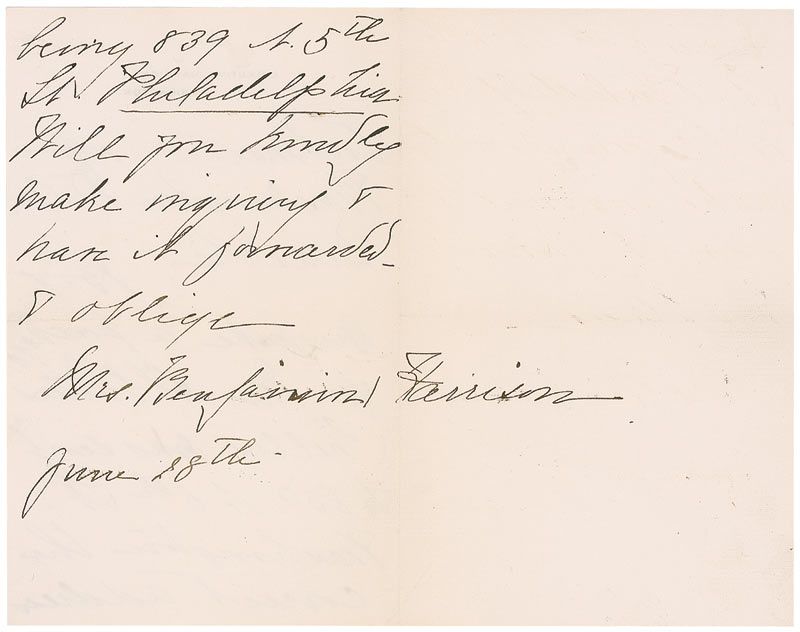 being 839 N. 5th
St. Philadelphia.
Will you kindly
make inquiry &
have it forwarded-
& oblige
Mrs. Benjamin Harrison
June 28th-